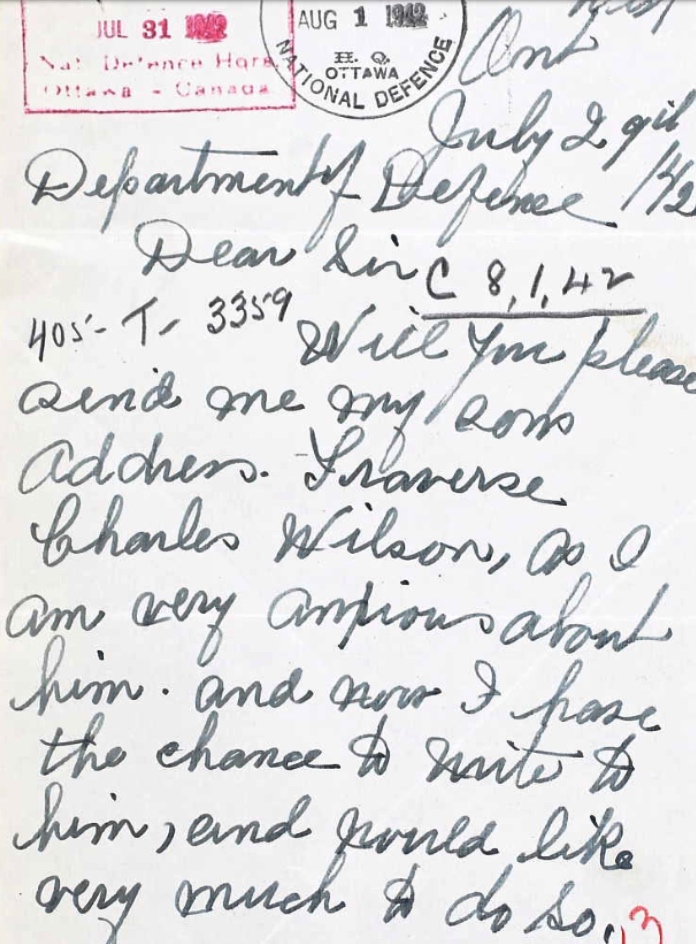 JUL 31 1942
Nat. Defence Hqrs.
Ottawa - Canada
AUG 1 1942
H. Q.
OTTAWA
NATIONAL DEFENCE
Ont
July 29th
/42
Department of Defence
Dear Sir
C 8,1,42
405- T- 3359
Will you please
send me my sons
Address. Traverse
Charles Wilson, as I
am very anxious about
him. and now I have
the chance to write to
him, and would like
very much to do so.